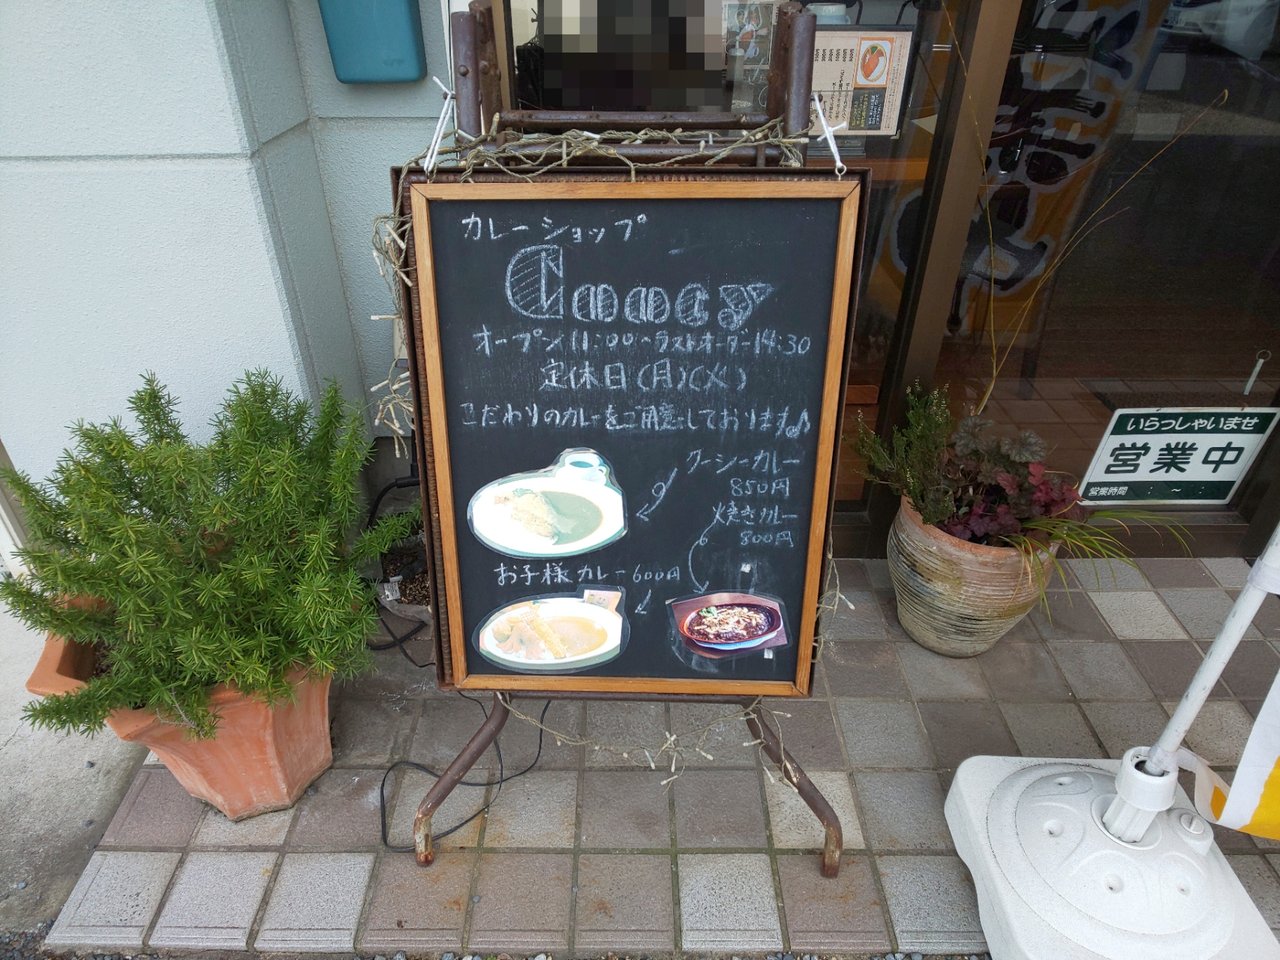 カレーショップ
Cooocy
オープン11:00〜ラストオーダー14:30
定休日(月)(火)
こだわりのカレーをご用意しております♪
クーシーカレー
850円
焼きカレー
800円
お子様カレー600円
いらっしゃいませ
営業中
営業時間 : 〜 :